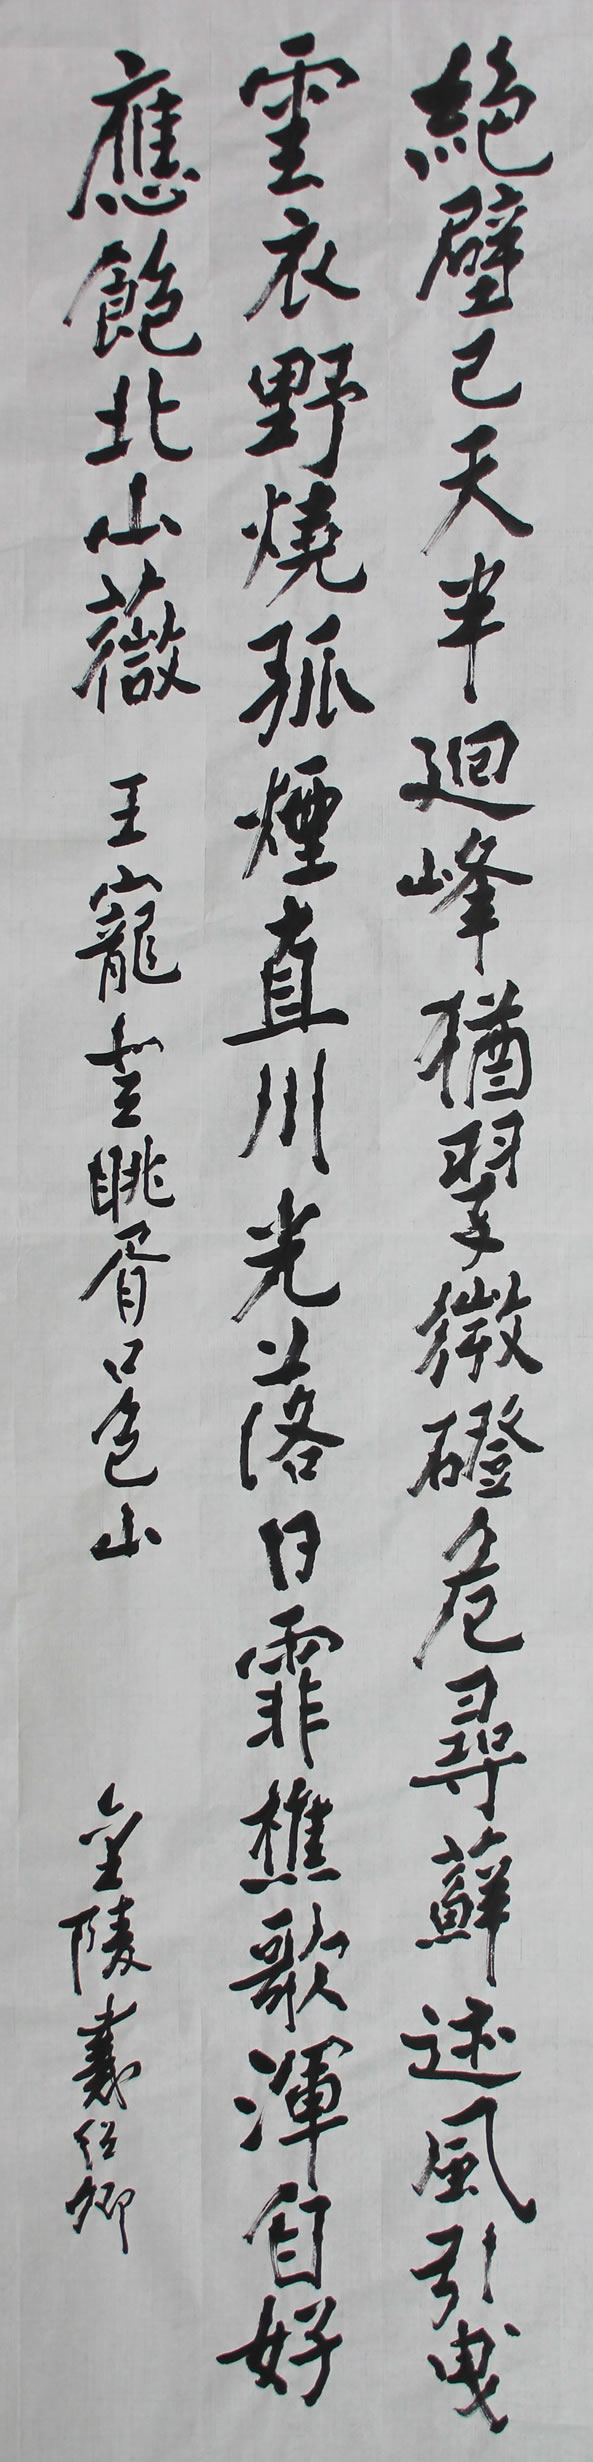 絶壁已天半廻峰猶翠微磴危尋蘚迹風引曳
雲衣野燒孤煙直川光落日霏樵歌渾自好
應飽北山薇 王寵登眺胥口包山 金陵戴紹卿